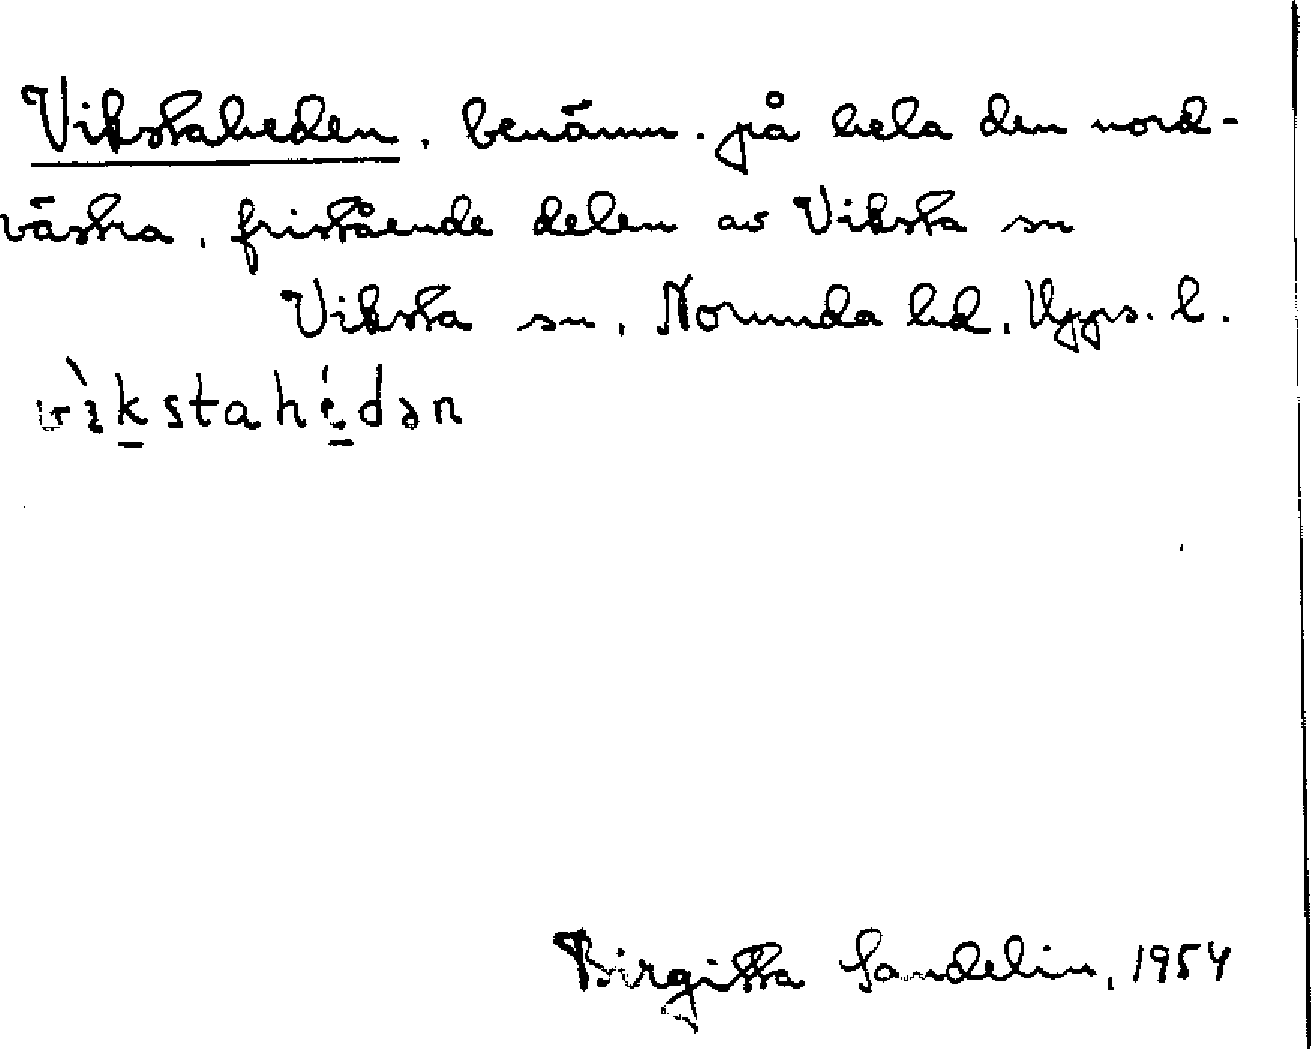 Vikstaheden, benämn. på hela den nord-
västra, fristående delen av Viksta sn
Viksta sn, Norunda hd, Upps. l.
vɩ̀k̲stahé̲dən
Birgitta Sandelin, 1954